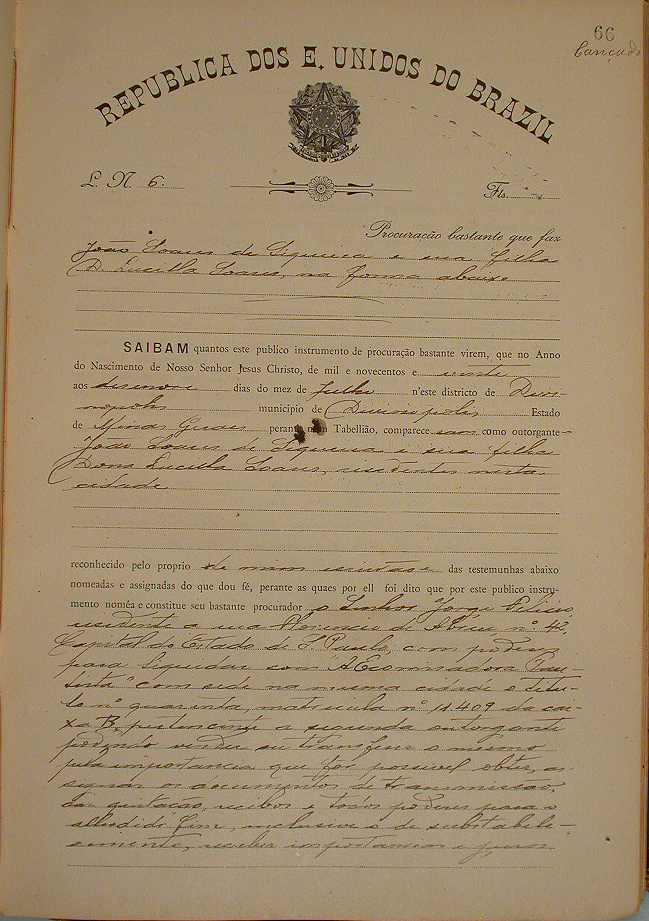 66
Cançado
REPUBLICA DOS E. UNIDOS DO BRAZIL
L. N. 6.
Fls.
Procuração bastante que faz
João Soares de Siqueira e sua filha
D. Lucilla Soares, na forma abaixo
SAIBAM quantos este publico instrumento de procuração bastante virem, que no Anno
do Nascimento de Nosso Senhor Jesus Christo, de mil e novecentos e vinte
aos desenove dias do mez de Julho n'este districto de Divi-
nopolis municipio de Divinopolis Estado
de Minas Geraes perante mim Tabellião, comparece ram como outorgante
João Soares de Siqueira e sua filha
Dona Lucilla Soares, residentes nesta
cidade
reconhecido pelo proprio de mim das testemunhas abaixo
nomeadas e assignadas do que dou fé, perante as quaes por ell foi dito que por este publico instru-
mento noméa e constitue seu bastante procurador o Senhor Jorge
residente a rua Florencio de Abreu nº 42,
Capital do Estado de S. Paulo, com poderes
para liquidar com A Economisadora Pau-
lista" com sede na mesma cidade o titu-
lo nº quarenta, matricula nº 11.409 da cai-
xa B, pertencente a segunda outorgante
podendo vender ou transferir o mesmo
pela importancia que for possivel obter, as-
signar os documentos de transmissão,
dar quitacao, recibos e todos poderes para o
alludido fim, inclusive o de substabele-
cimento, receber importancias e juros